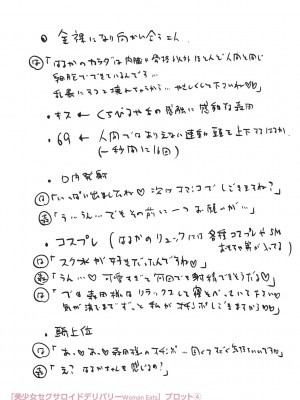 ● 全裸になり向かい合う二人
は「はるかのカラダは内臓や骨格以外ほとんど人間と同じ
細胞でできているんです…
乱暴にすると壊れちゃうから…やさしくして下さいね♡♡
・キス ← くちびるやその感触に感動な
・69 ← 人間ではありえない連動 頭を上下するはるか
(一秒間に16回)
・口内発射
は「いっぱい出ましたね♡ 次は でしごきますね?」
「うぅうん… でもその前に一つお願いが…」
・コスプレ (はるかのリュックには各種コスプレやSM
おもちゃ等が入ってる)
は「スク水が好きだったんですね♡」
「うん…♡ 可愛すぎて何回でも射精できそうだよ♡」
は「では 様はリラックスして寝そべっていて下さい
気が済むまでずっと私が しごきますから♡」
・騎上位
は「あっ♡あっ♡
「え? はるかちゃんも感じるの?」
「美少女セクサロイドデリバリーWoman Eats」 プロット④